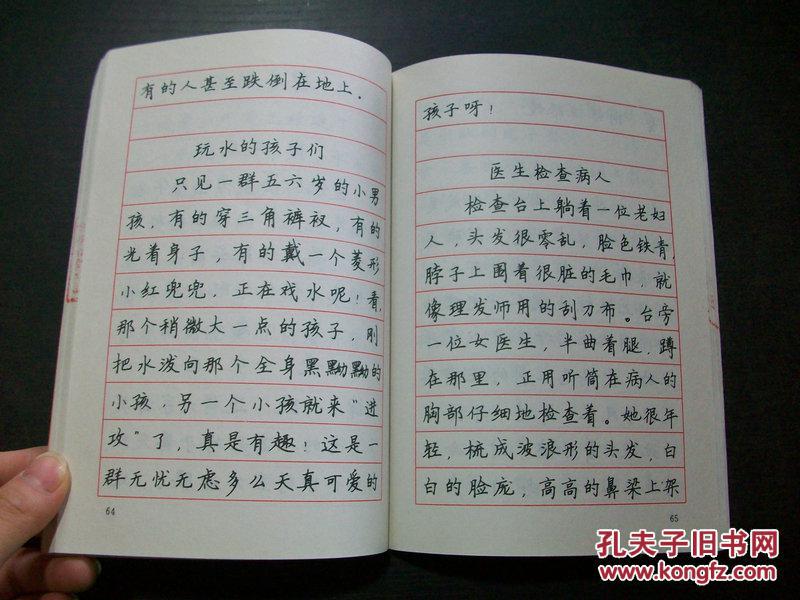 有的人甚至跌倒在地上.
玩水的孩子们
只见一群五六岁的小男
孩，有的穿三角裤衩，有的
光着身子，有的戴一个菱形
小红兜兜，正在戏水呢！看，
那个稍微大一点的孩子，刚
把水泼向那个全身黑黝黝的
小孩，另一个小孩就来“进
攻”了，真是有趣！这是一
群无忧无虑多么天真可爱的
64
孩子呀！
医生检查病人
检查台上躺着一位老妇
人，头发很零乱，脸色铁青，
脖子上围着很脏的毛巾，就
像理发师用的刮刀布。台旁
一位女医生，半曲着腿，蹲
在那里，正用听筒在病人的
胸部仔细地检查着。她很年
轻，梳成波浪形的头发，白
白的脸庞，高高的鼻梁上架
65
孔夫子旧书网
www.kongfz.com